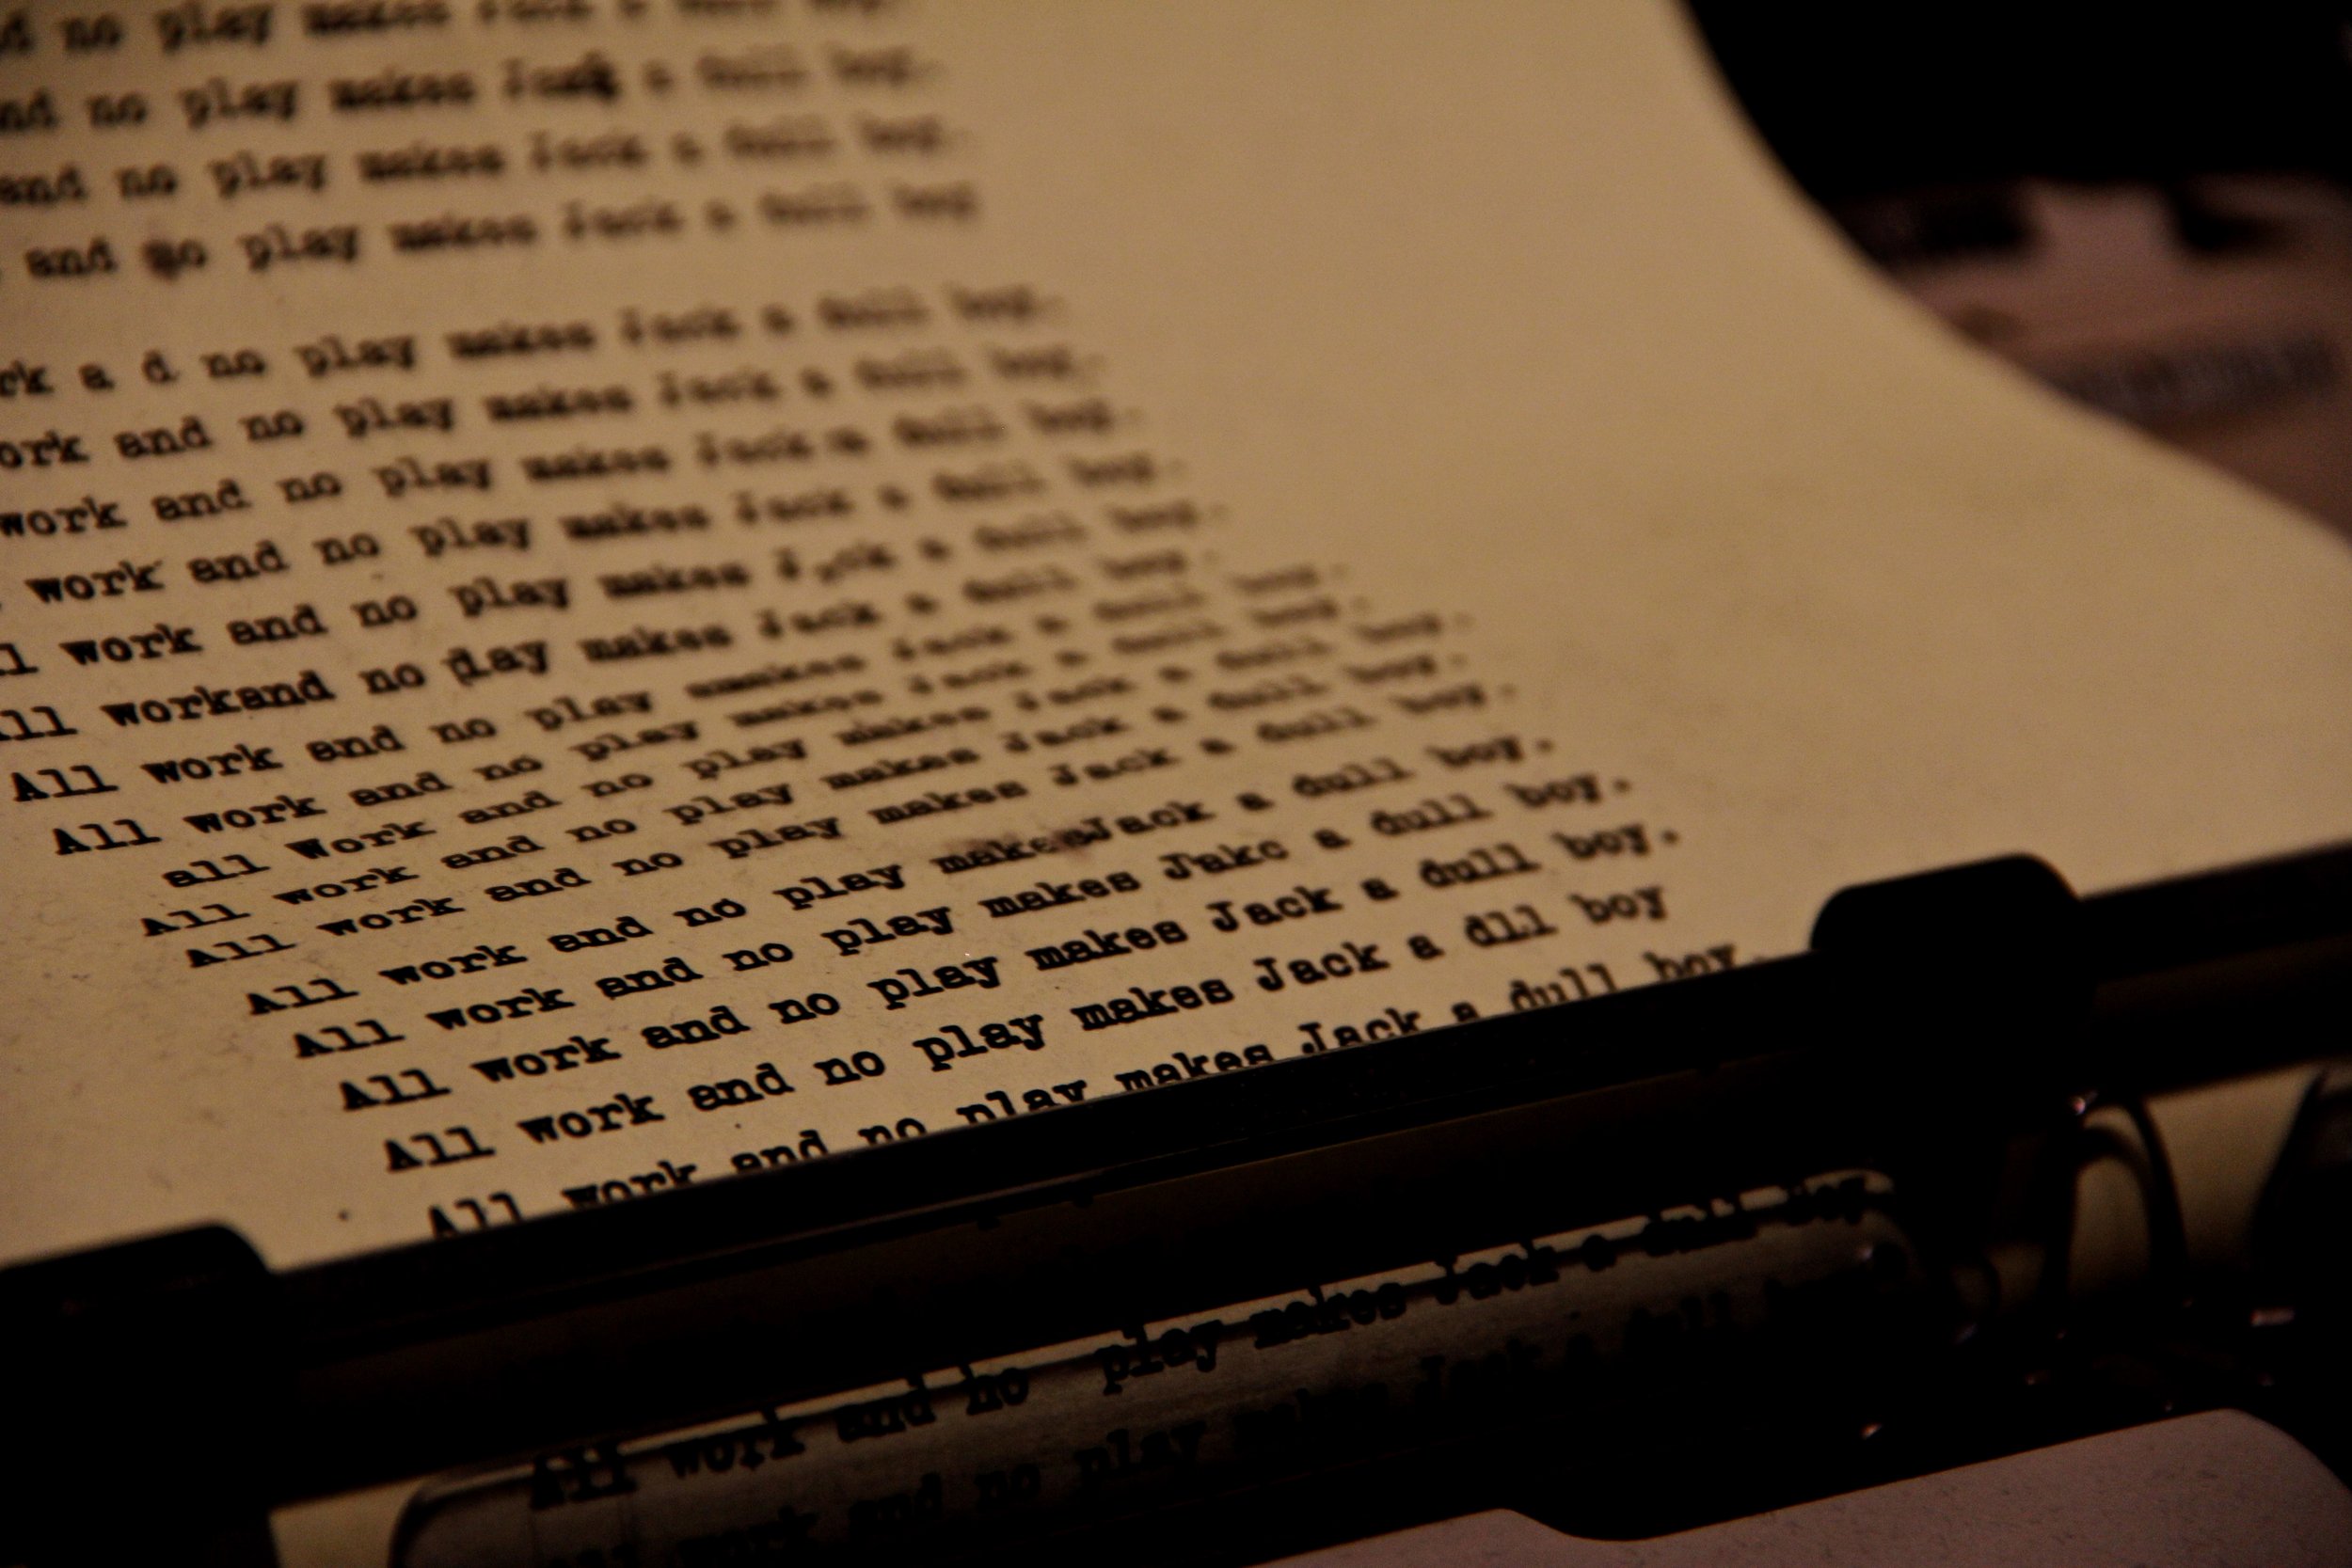 d no play makes Jack a dull boy.
nd no play makes Jack a dull boy.
and no play makes Jack a dull boy.
and no play makes Jack a dull boy
rk a d no play makes Jack a dull boy.
ork and no play makes Jack a dull boy.
work and no play makes Jack a dull boy.
work and no play makes Jack a dull boy.
ll work and no play makes J,ck a dull boy.
All workand no play makes Jack a dull boy.
All work and no play makes Jack a dull boy.
All work and no play makes Jack a dull boy.
all Work and no play makes Jack a dull boy.
All work and no play makes Jack a dull boy.
All work and no play makes Jack a dull boy.
All work and no play makesJack a dull boy.
All work and no play makes Jakc a dull boy.
All work and no play makes Jack a dull boy.
All work and no play makes Jack a dll boy
All work and no play makes Jack a dull boy.
All work and no play makes Jack a dull boy
All work and no play makes Jack a dull